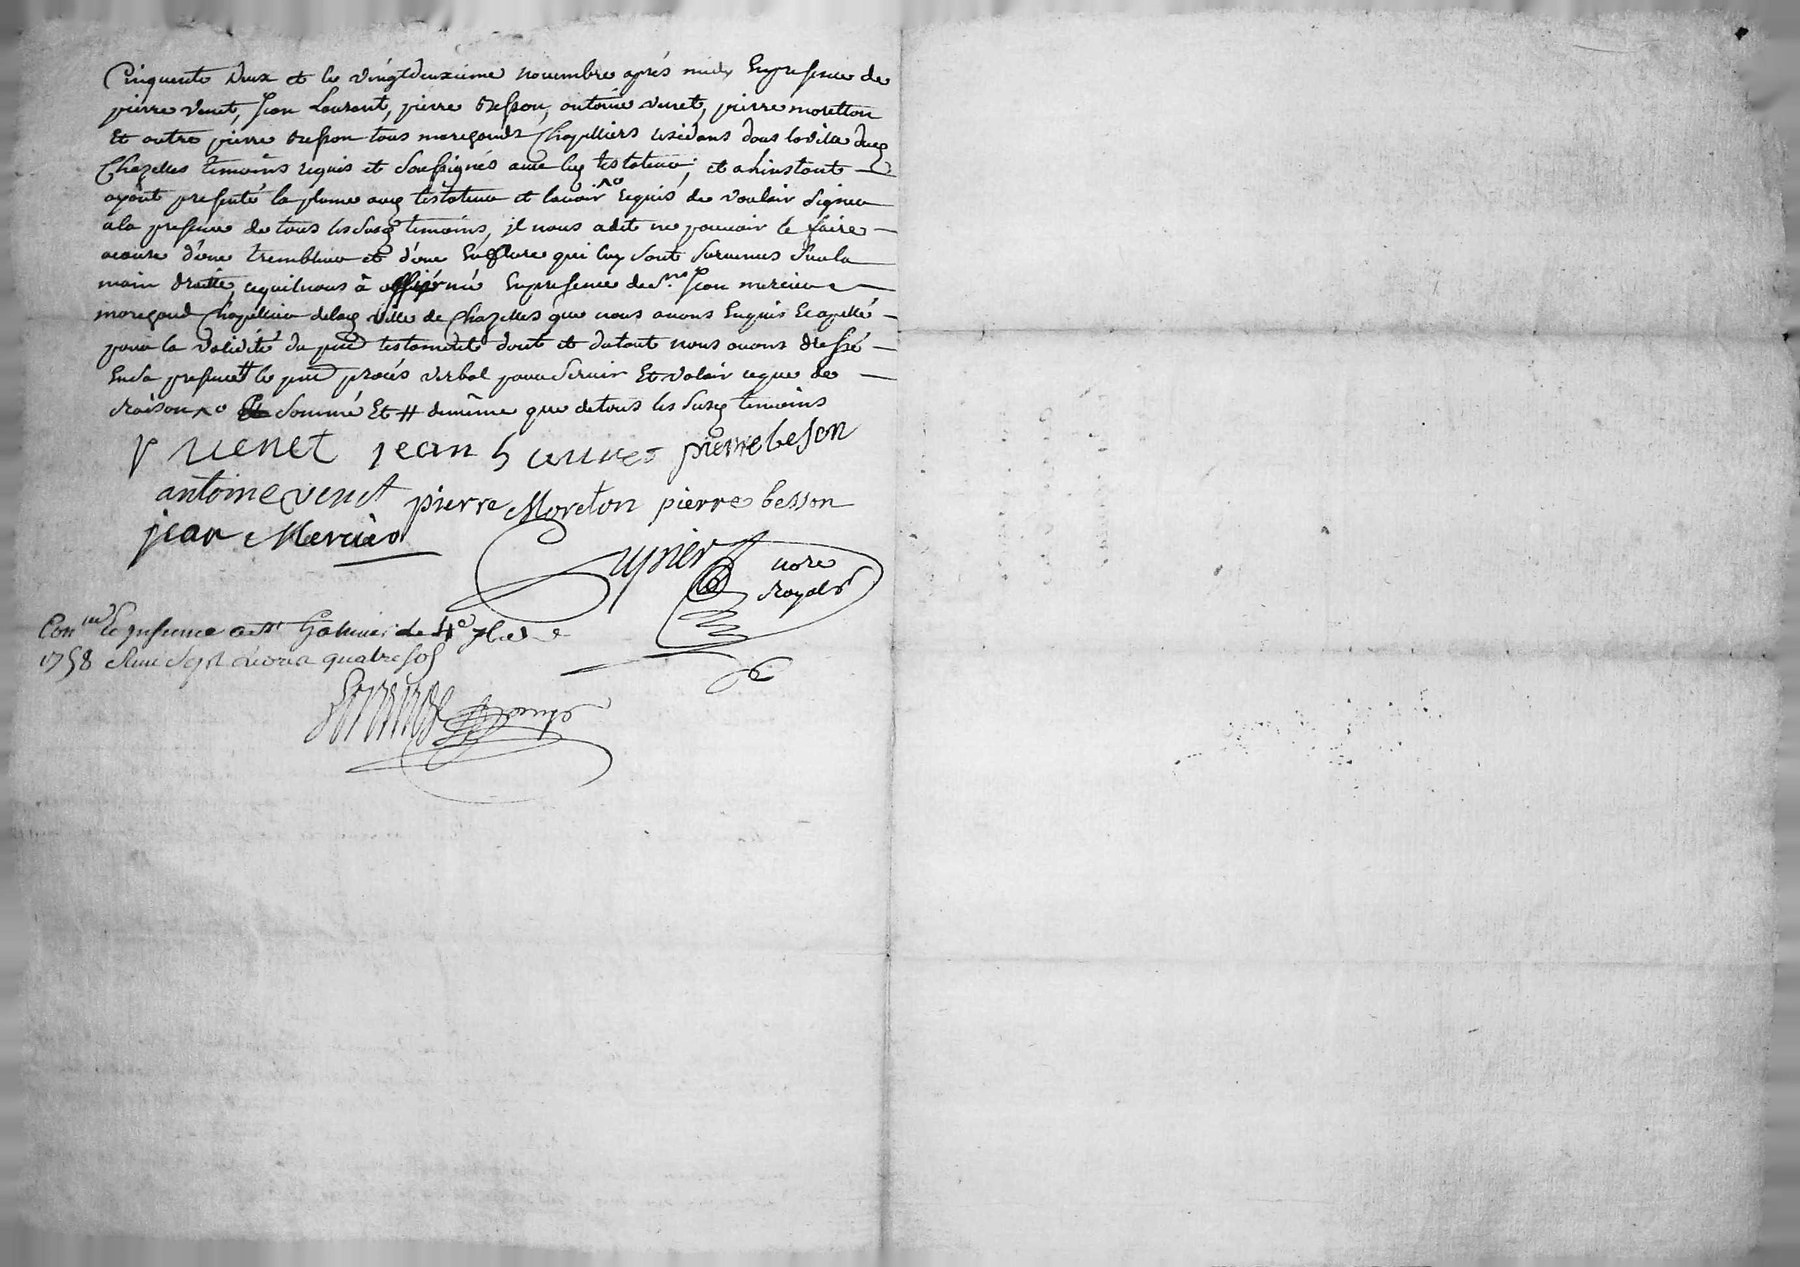 Cinquente deux et le vingtdeuxieme novembre aprés midy Enpresence de
pierre venet, Jean Laurent, pierre Besson, antoine venet, pierre moretton
Et autre pierre Besson tous marchands Chapelliers residans dans la ville dud
Chazelles temoins requis et soussignés avec led testateur; et a linstant
ayant presenté la plume aud testateur et lavoir ^o requis de vouloir signer
ala presence de tous les susd temoins, il nous a dit ne pouvoir le faire
acause d'un trembleur et d'une Enflure qui luy sont survenus sur la
main droite, cequil nous à affirmé Enpresence de Sr. Jean mercier
marchand Chapellier delad ville de Chazelles que nous avons Enquis Et apellé
pour la validité du pnt testament dont et du tout nous avons dressé
Ensa presence # le pnt procés verbal pour servir Et valoir ceque de
raison ^o sommé Et # demême que detous les susd temoins
P venet jean Laurent pierre beson
antoine venet pierre Moreton pierre besson
jean Mercier
Guynier nore
Royal
Conlle Enpresence a St Galmier le 4e 7bre
1758 Reçu sept livres quatre sols